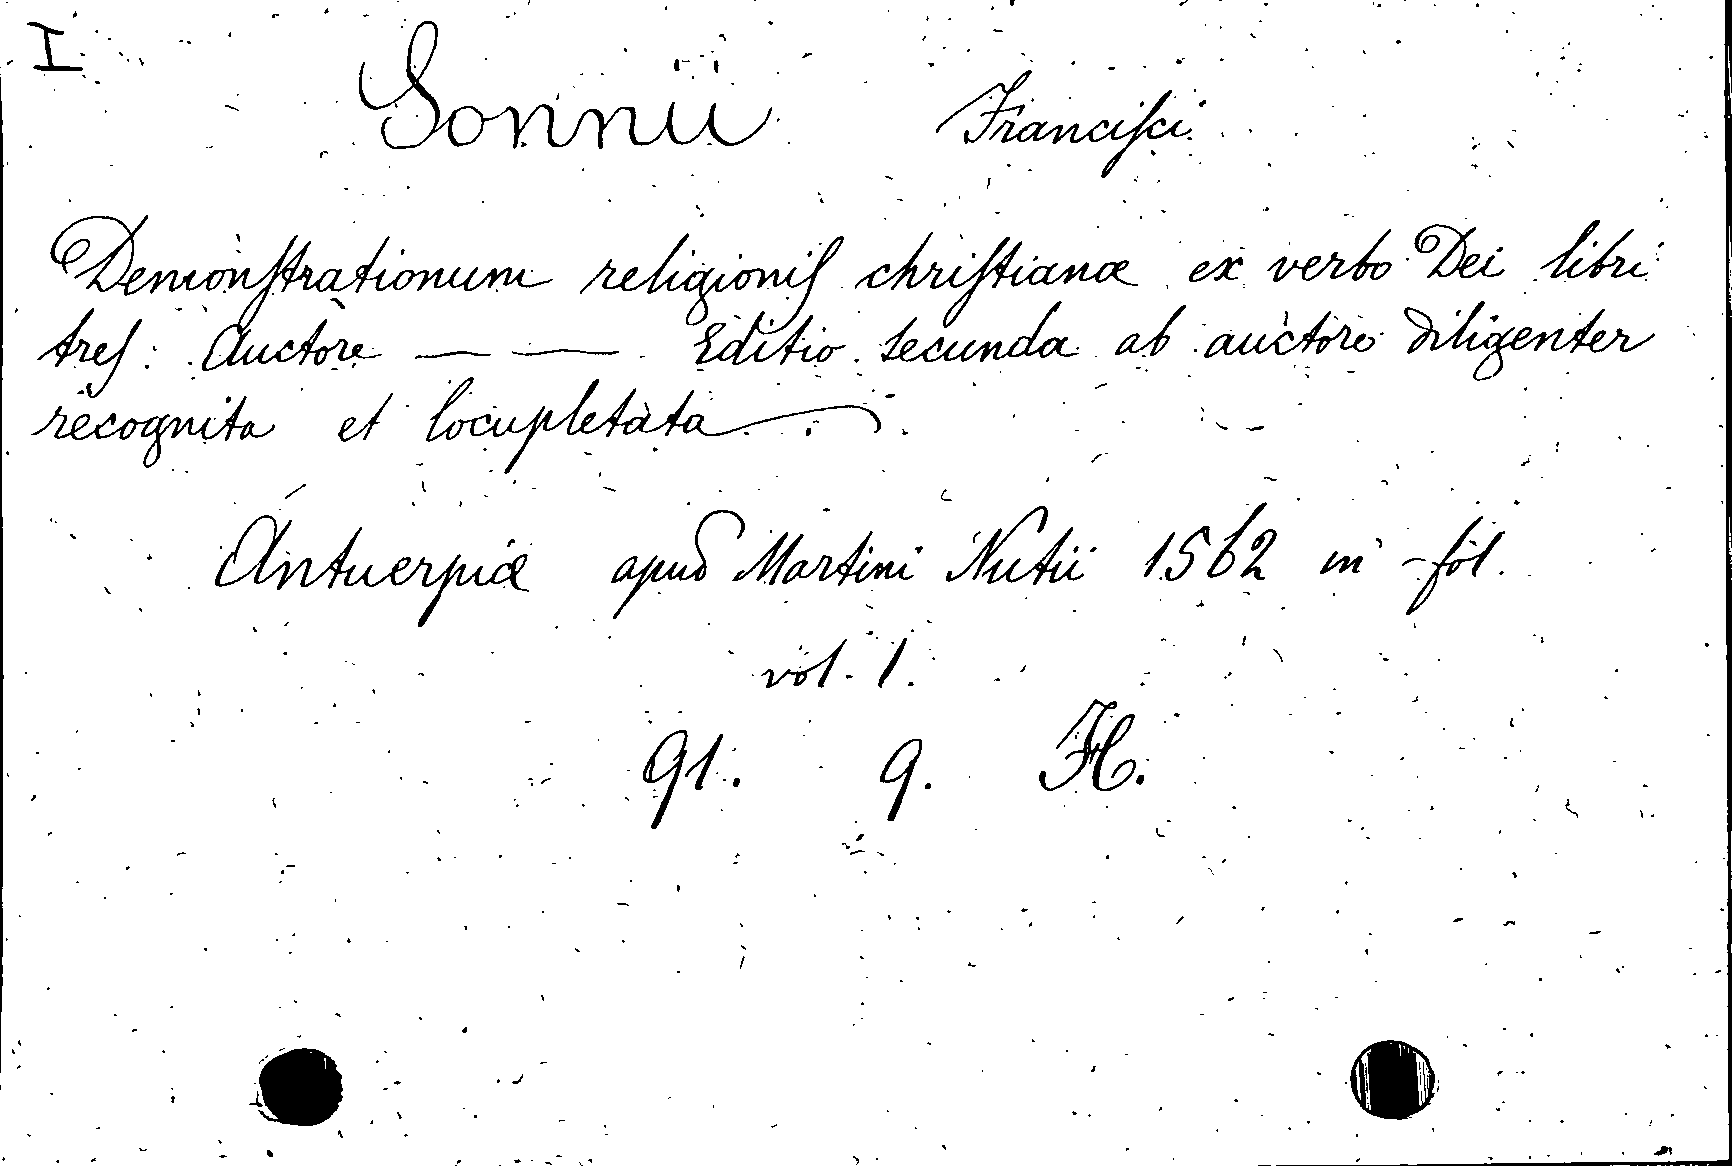 I
Sonnii Franciſci
Demonſtrationum religioniſ chriſtianæ ex verbo Dei libri
treſ. Auctore — — Editio secunda ab auctore diligenter
recognita et locupletata
Antuerpiæ apud Martini Nutii 1562 in-fol.
vol. 1.
91. 9. H.